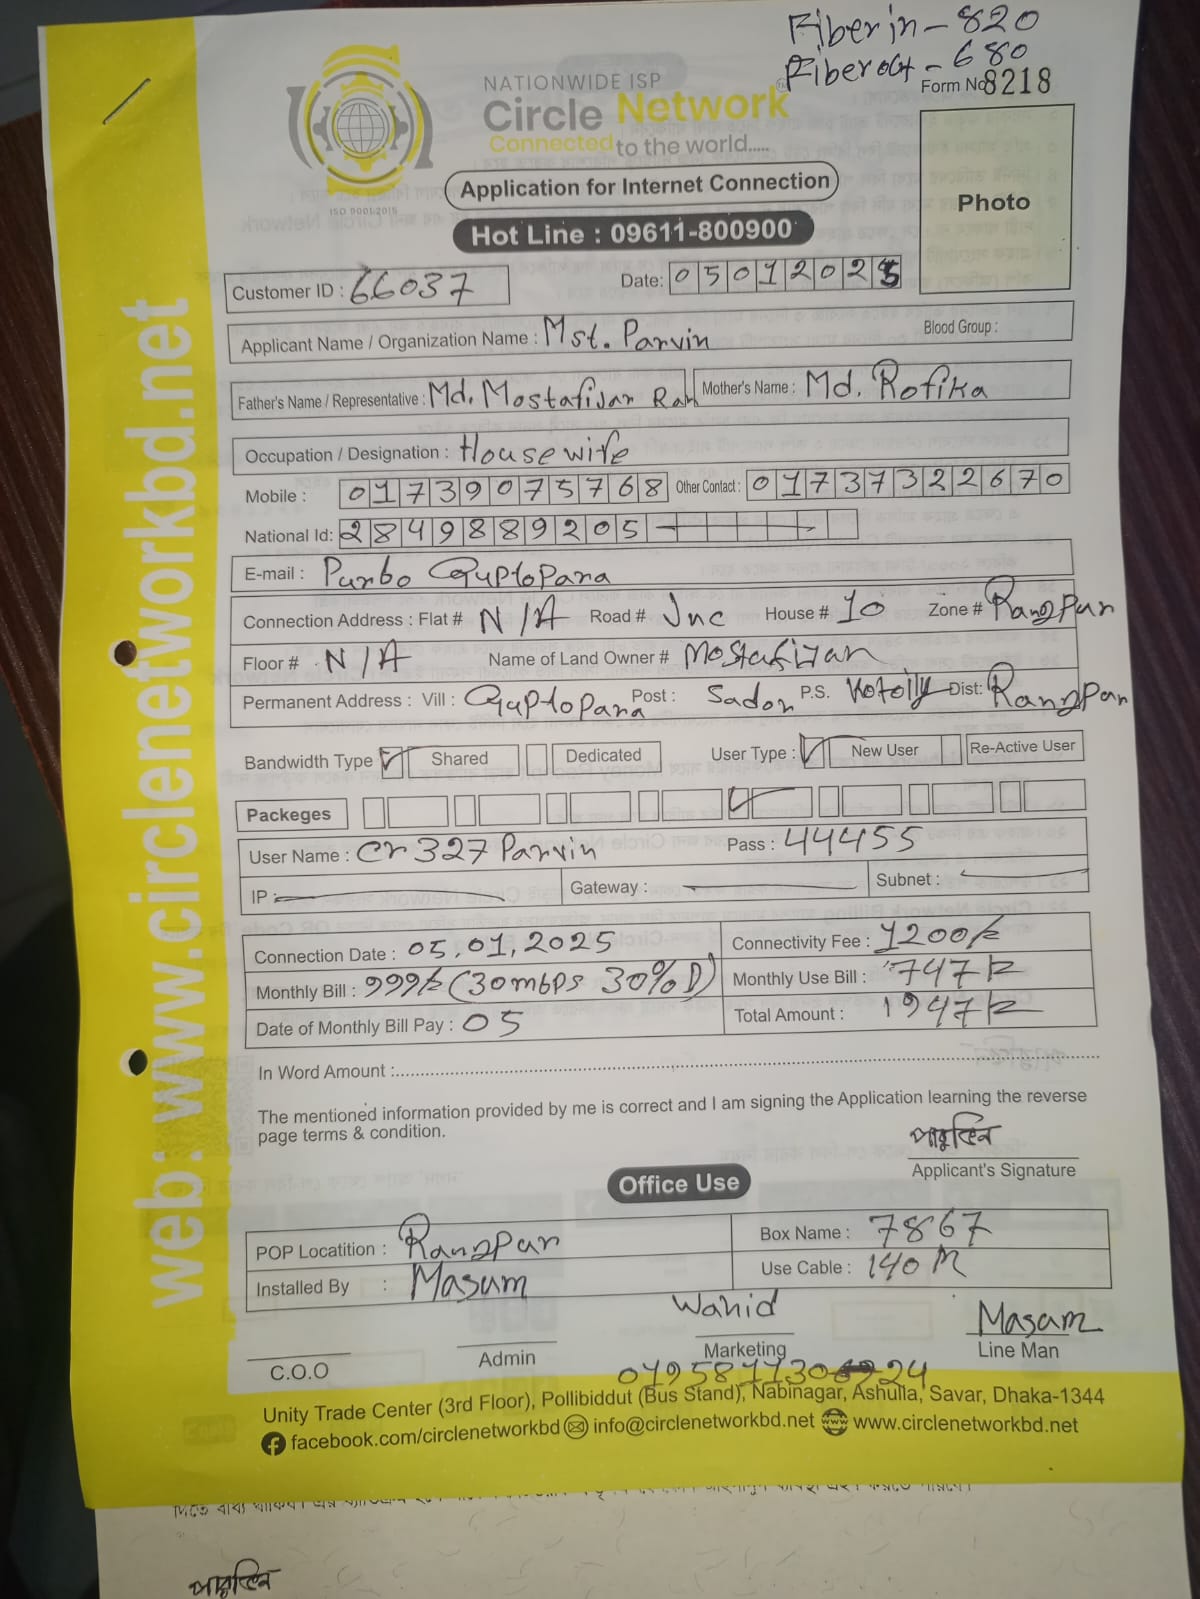 Fiber in - 820
Fiber oct - 680
NATIONWIDE ISP
Circle Network
Connected to the world.....
Form No 8218
ISO 9001:2015
Application for Internet Connection
Hot Line : 09611-800900
Photo
Customer ID : 66037 Date: 05012025
Applicant Name / Organization Name : Mst. Parvin Blood Group :
Father's Name / Representative : Md. Mostafijar Rah Mother's Name : Md. Rofika
Occupation / Designation : House wife
Mobile : 01739075768 Other Contact : 01737322670
National Id: 2849889205
E-mail : Purbo Guptopara
Connection Address : Flat # N/A Road # Jnc House # 10 Zone # Rangpur
Floor # N/A Name of Land Owner # Mostafizar
Permanent Address : Vill : Guptopara Post : Sador P.S. Kotoily Dist: Rangpur
Bandwidth Type Shared Dedicated User Type : New User Re-Active User
Packeges
User Name : cr327Parvin Pass : 44455
IP : Gateway : Subnet :
Connection Date : 05.01.2025 Connectivity Fee : 1200/-
Monthly Bill : 999/- (30mbps 30% D) Monthly Use Bill : 747/-
Date of Monthly Bill Pay : 05 Total Amount : 1947/-
In Word Amount :
The mentioned information provided by me is correct and I am signing the Application learning the reverse
page terms & condition.
পারভিন
Applicant's Signature
Office Use
POP Locatition : Rangpur Box Name : 7867
Installed By : Masum Use Cable : 140 M
Wahid Masum
C.O.O Admin Marketing Line Man
Unity Trade Center (3rd Floor), Pollibiddut (Bus Stand), Nabinagar, Ashulia, Savar, Dhaka-1344
facebook.com/circlenetworkbd info@circlenetworkbd.net www.circlenetworkbd.net
web: www.circlenetworkbd.net
পারভিন